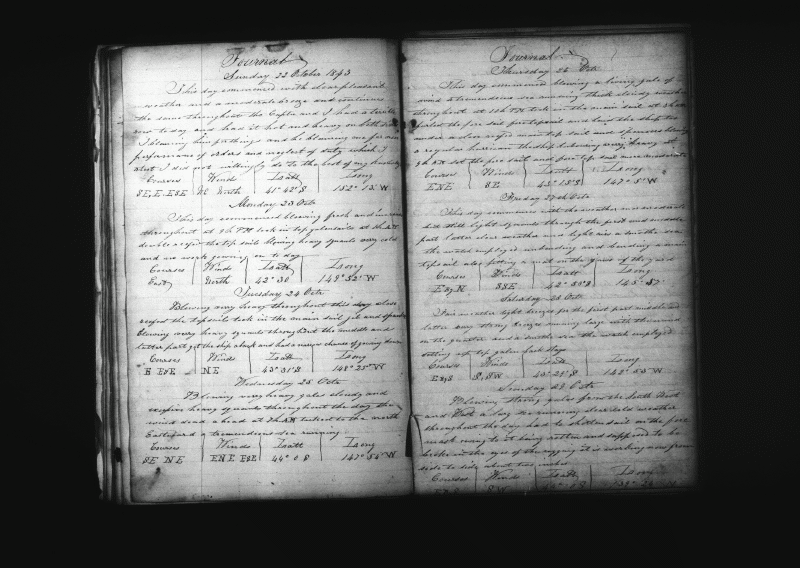 Journal
Sunday 22 October 1843
This day commenced with clear pleasant
weather and a moderate breeze and continues
the same throughout the Captn and I had a terrible
row to day and had it hot and heavy on both sides
I blaming him for things and he blaming me for non
performance of orders and neglect of duty which I
did not willingly do to the best of my
Courses Winds Latt Long
SE, E ESE NE North 41° 42' S 152° 12' W
Monday 23 Octr
This day commenced blowing fresh and
throughout at 9h PM took in top galensails at 4h AM
double reefed the top sails blowing heavy squalls very cold
and no work going on to day
Courses Winds Latt Long
East North 42° 30' 149° 52' W
Tuesday 24 Octr
Blowing very heavy throughout this day close
reefed the topsails took in the main sail jib and spanker
blowing very heavy squalls throughout the middle and
latter part got the ship aback and had a narrow chance of going down
Courses Winds Latt Long
E EbE NE 43° 31' S 148° 25' W
Wednesday 25 Octr
Blowing very heavy gales cloudy and
heavy squalls throughout the day the
wind dead ahead at 7h AM tacked to the north
Eastward a tremendious sea running
Courses Winds Latt Long
SE NE ENE ESE 44° 0 S 147° 54' W
Journal
Thursday 26 Octr
This day commenced blowing a living gale of
wind a tremendious sea running thick cloudy weather
throughout at 11h PM took in the main sail at
the fore sail and laid the ship too
under a close reefed main top sail and spencer blowing
a regular hurrican the ship laboring very heavy at
9h AM set the fore sail and fore top sail more moderate
Courses Winds Latt Long
ENE SE 43° 18' S 147° 5' W
Friday 27th Octr
This day commences with the weather more moderate
but still light squalls through the first and middle
part latter clear weather and light airs a smooth sea
the watch employed unbending and bending a main
topsail also fitting a
Courses Winds Latt Long
EbyN SSE 42° 50' S 145° 57'
Saturday 28 Octr
Fine weather light breezes for the first part middle and
latter very strong breezes running large with the wind
on the quarter and a smooth sea the watch employed
setting up top galen back stays
Courses Winds Latt Long
EbyS S, SW 43° 29' S 142° 53' W
Sunday 29 Octr
Blowing strong gales from the South West
and West a large sea running clear cold weather
throughout the day had to shorten sail on the fore
mast owing to it being rotten and supposed to be
broke in the eyes of the rigging it is working away from
side to side about two inches
Courses Winds Latt Long
SW